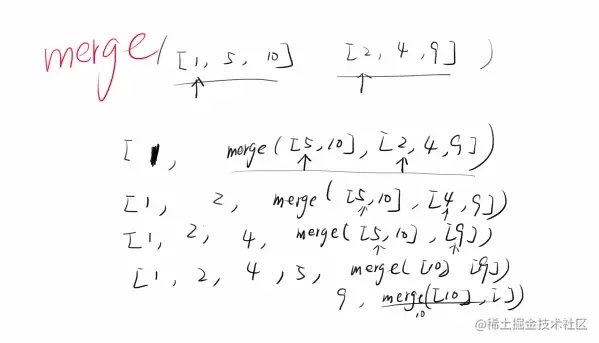 merge( [1, 5, 10] [2, 4, 9] )
[ 1, merge([5,10], [2,4,9])
[1, 2, merge( [5,10] , [4,9])
[1, 2, 4, merge( [5,10] , [9])
[1, 2, 4, 5, merge( [10] [9])
9, merge([10], [])
10
@稀土掘金技术社区